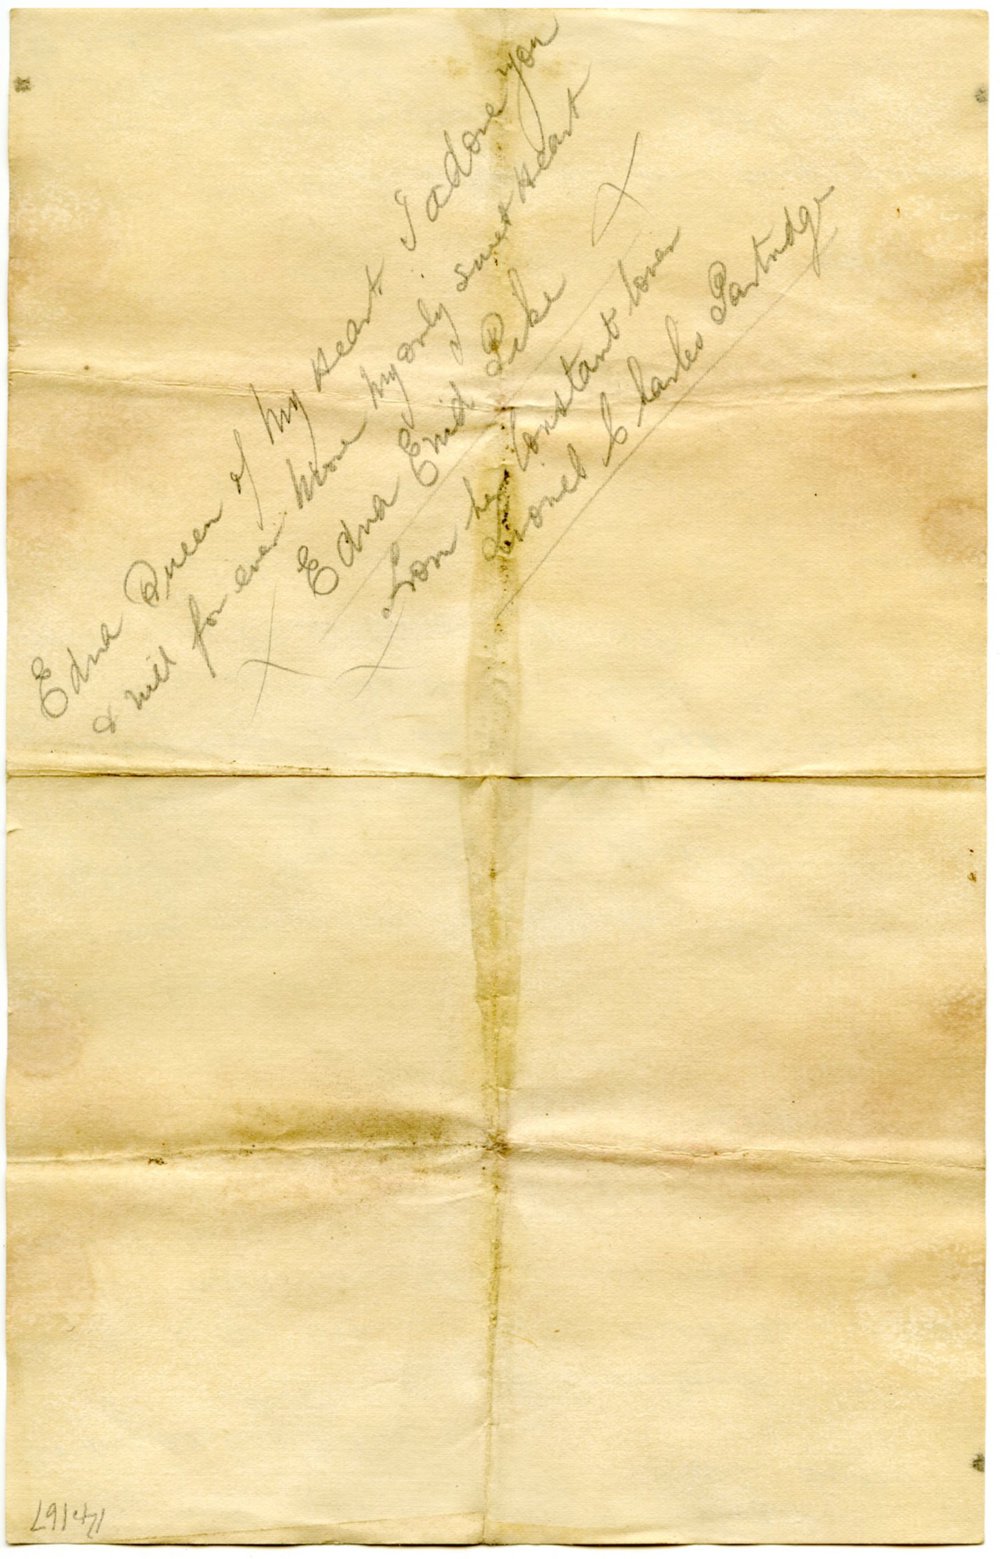 Edna Queen of My Heart. I adore you
& will for ever more My only sweet Heart
Edna Enid Pike
from her Constant lover
Lionel Charles Partridge
14167